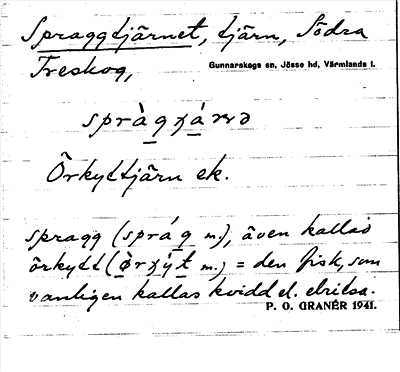 Spraggtjärnet, tjärn, Södra
Treskog,
Gunnarskogs sn, Jösse hd, Värmlands l.
Örkyttjärn ek.
spragg (språ̀g m.), även kallad
örkytt (m.) = den fisk, som
vanligen kallas kvidd el. elritsa.
P. O. GRANÉR 1941.